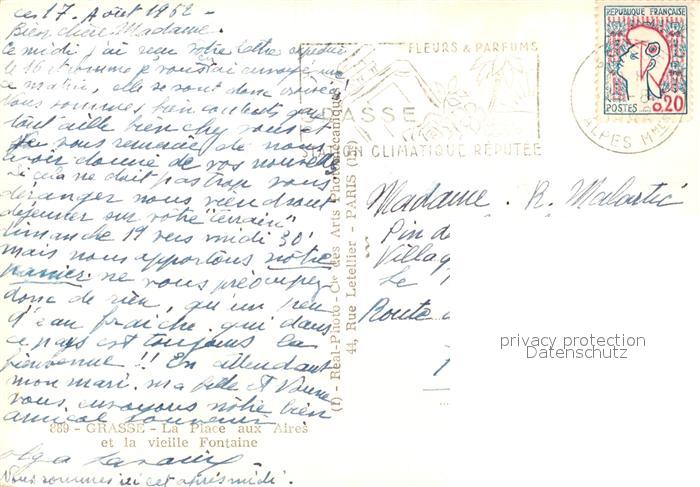 ce 17. Août 1962 -
Bien chère Madame.
Ce midi j'ai reçu votre lettre expédiée
le 16 et comme je vous ai envoyé une
ce matin, elle se sont donc croisées
nous sommes bien contents que
tout aille bien chez vous et
je vous remercie de nous
avoir donné de vos nouvelles
Si cela ne doit pas trop vous
déranger nous viendrons
déjeuner sur votre "terrain"
dimanche 19 vers midi 30'
mais nous apportons notre
panier. ne vous préoccupez
donc de rien, qu'un peu
d'eau fraîche qui dans
ce pays est toujours la
bienvenue !! En attendant
mon mari, ma fille et
vous envoyons notre bien
amical souvenir.
Olga
Nous sommes ici cet après midi.
889 - GRASSE - La Place aux Aires
et la vieille Fontaine
(f) - Réal-Photo - Cie des Arts Photomécaniques
44, Rue Letellier - PARIS (15e)
FLEURS & PARFUMS
GRASSE
STATION CLIMATIQUE RÉPUTÉE
REPUBLIQUE FRANÇAISE
POSTES 0,20
ALPES MMES
Madame. R. Malartic
Pin d
Villag
Le
Route
privacy protection
Datenschutz